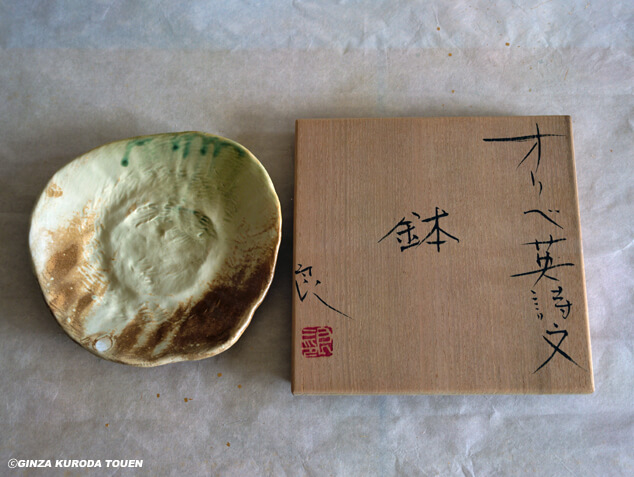 オリベ英詩文
鉢
©GINZA KURODA TOUEN